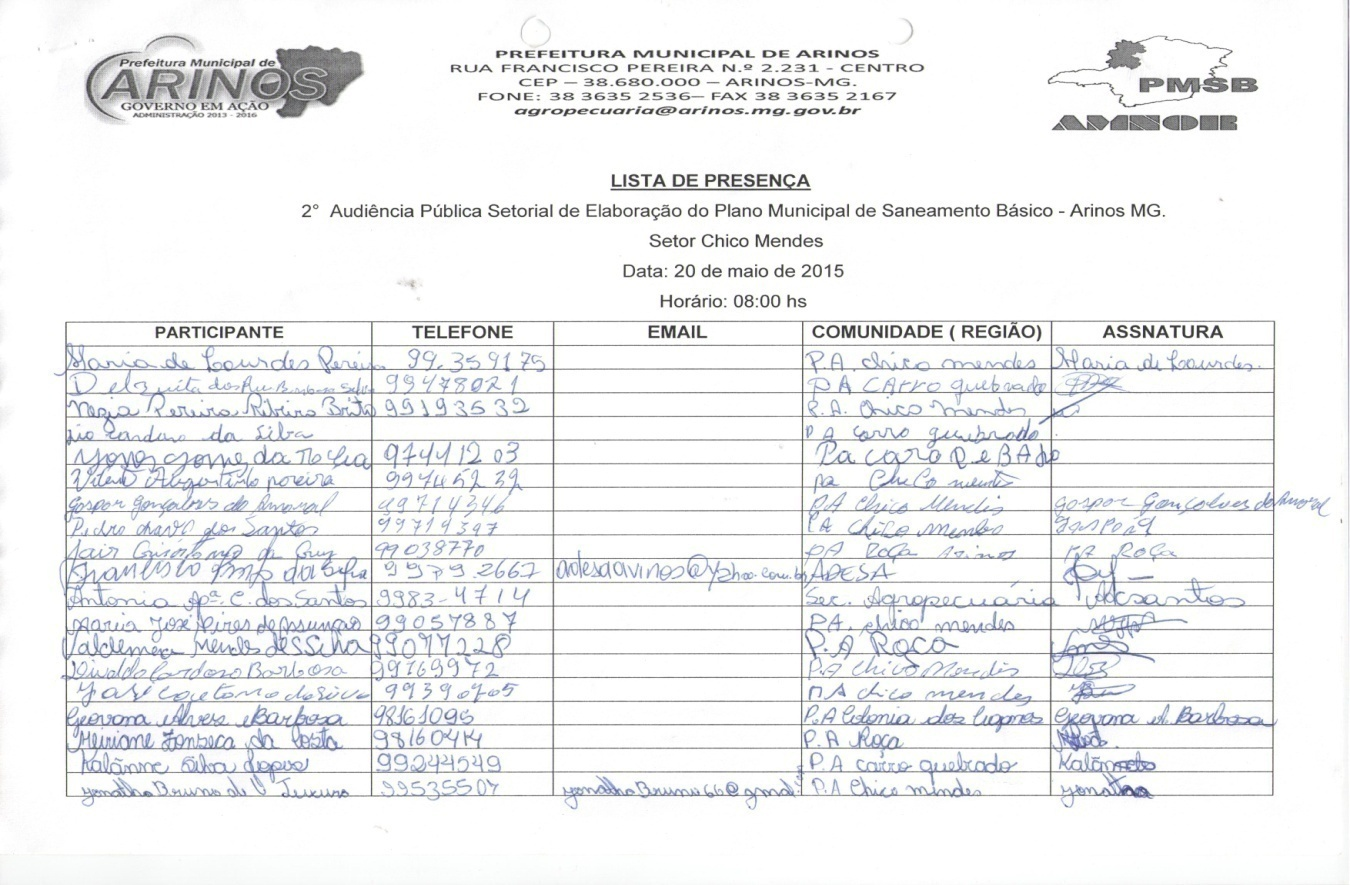 Prefeitura Municipal de
ARINOS
GOVERNO EM AÇÃO
ADMINISTRAÇÃO 2013 - 2016
PREFEITURA MUNICIPAL DE ARINOS
RUA FRANCISCO PEREIRA N.º 2.231 - CENTRO
CEP – 38.680.000 – ARINOS-MG.
FONE: 38 3635 2536– FAX 38 3635 2167
agropecuaria@arinos.mg.gov.br
PMSB
AMNOR
LISTA DE PRESENÇA
2° Audiência Pública Setorial de Elaboração do Plano Municipal de Saneamento Básico - Arinos MG.
Setor Chico Mendes
Data: 20 de maio de 2015
Horário: 08:00 hs
PARTICIPANTE TELEFONE EMAIL COMUNIDADE ( REGIÃO) ASSNATURA
Maria de Lourdes Pereira 99.359175 P.A. chico mendes Maria de Lourdes.
99478021 PA CARRO quebrado
Pereira Ribeiro Brito 99193532 P.A. Chico Mendes
da Silva PA carro quebrado
da Rocha 97441203 Pa
Agostinho pereira 99745232 pa ChiCo mendes
gaspar gonçalves do Amaral 99714346 P.A Chico Mendis gaspar Gonçalves do Amaral
Pedro dos Santos 99714397 PA Chico Mendes
Jair 99038770 PA ROÇA Arinos PA ROÇA
Francisco da Silva 9979.2667 ADESA
Antonia Apª. C. dos Santos 9983-4714 Sec. Agropecuária Acsantos
Maria José Pires de Assunção 99057887 PA. chico mendes
Valdemira Mendes 99077228 P.A Roça
Divaldo Cardoso Barbosa 99769972 P.A Chico Mendis
José caetano da silva PA chico mendes
Geovana Alves Barbosa 98161095 P.A Colonia dos Geovana A. Barbosa
Meiriane Fonseca da Costa 98160414 P.A Roça
Kalânne Silva Lopes 99244549 P.A carro quebrado
Bruno de 99535507 P.A Chico mendes